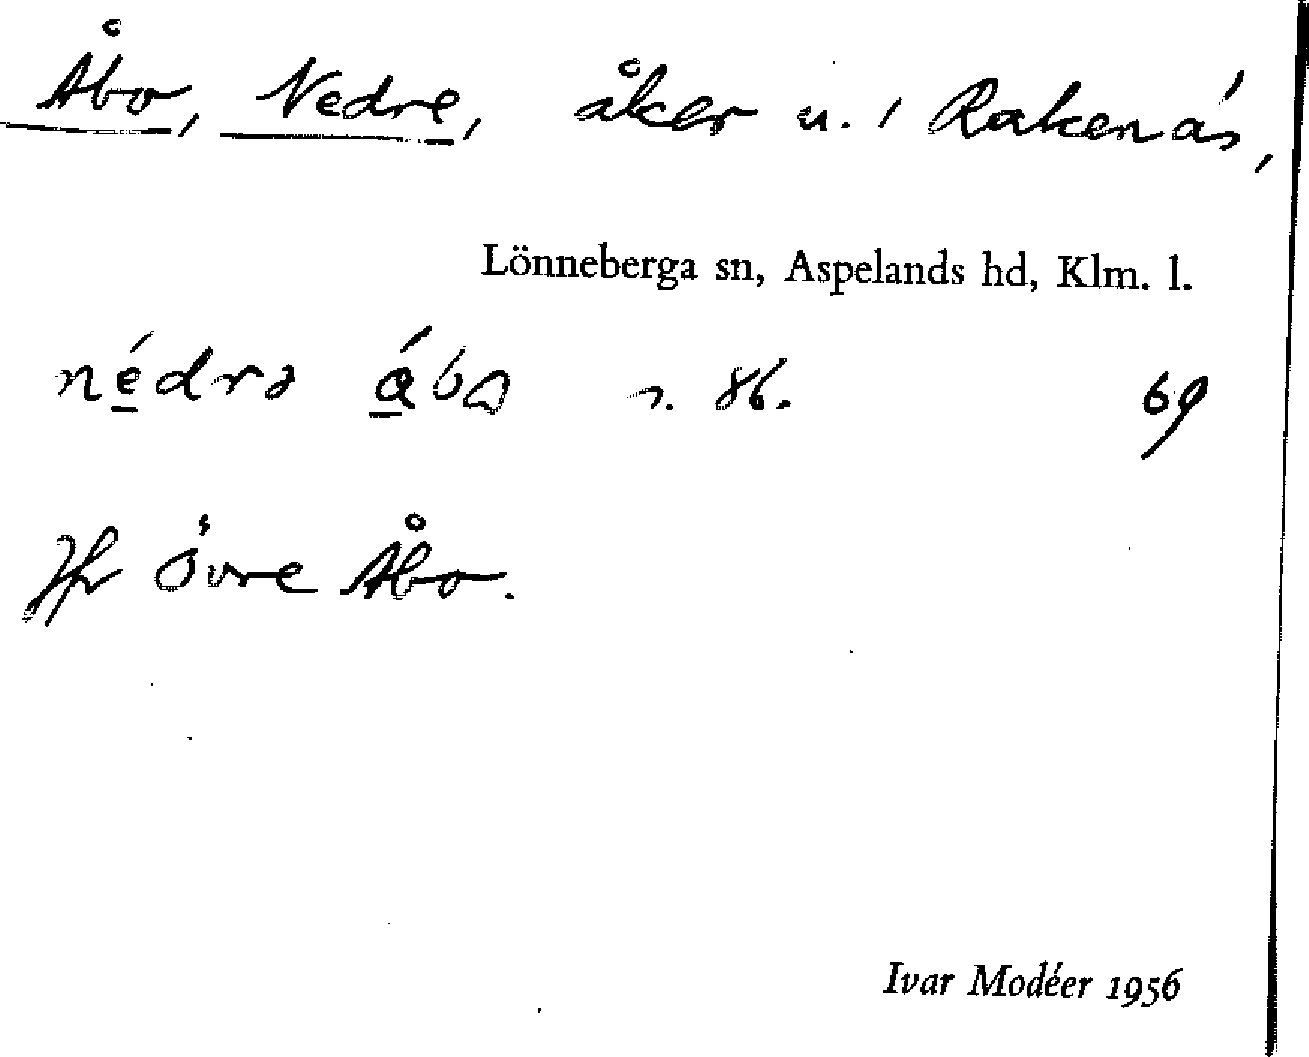 Åbo, Nedre, åker u. / Rakenäs,
Lönneberga sn, Aspelands hd, Klm. l.
nédrə åbω r. 86. 69
Jfr Övre Åbo.
Ivar Modéer 1956